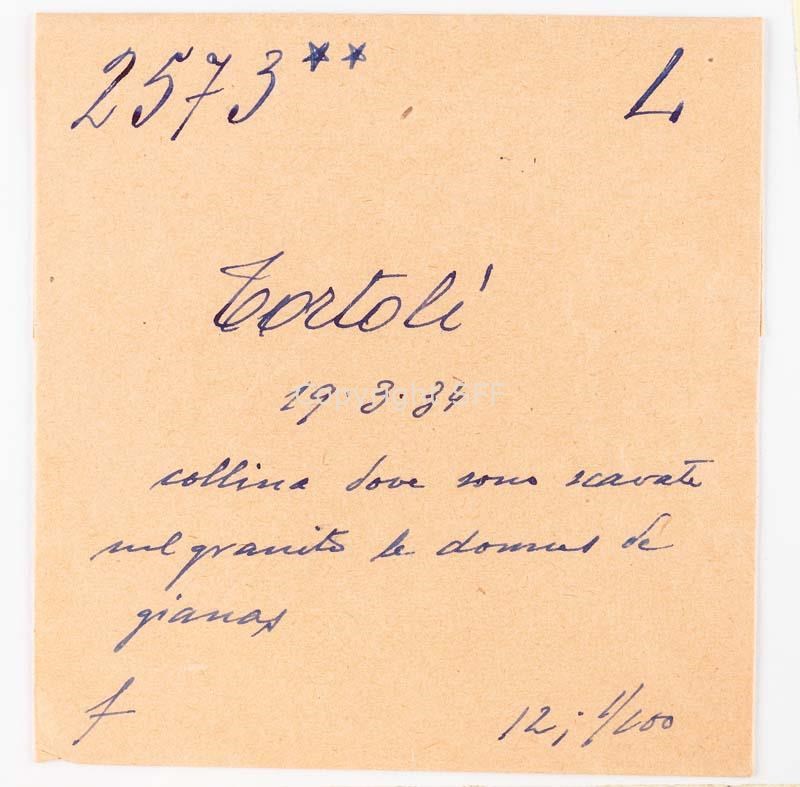 2573** L
Tortolí
19.3.34
collina dove sono scavate
nel granito le domus de
gianas
f 12; 1/100